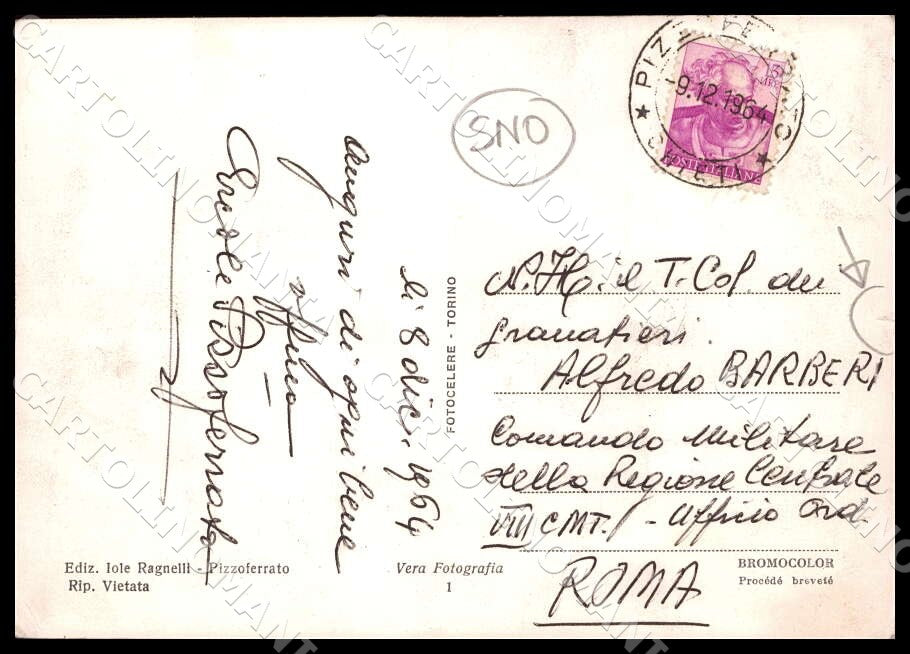 PIZZOFERRATO
CHIETI
-9.12.1964
POSTE ITALIANE
SNO
lì 8 dic. 1964
auguri di ogni bene
Ercole Pizzoferrato
N.H. il T. Col. dei
Granatieri
Alfredo BARBERI
Comando Militare
della Regione Centrale
VIII CMT. - Ufficio Ord.
ROMA
FOTOCELERE - TORINO
Ediz. Iole Ragnelli - Pizzoferrato
Rip. Vietata
Vera Fotografia
1
BROMOCOLOR
Procédé breveté
CARTOLINOMANTI